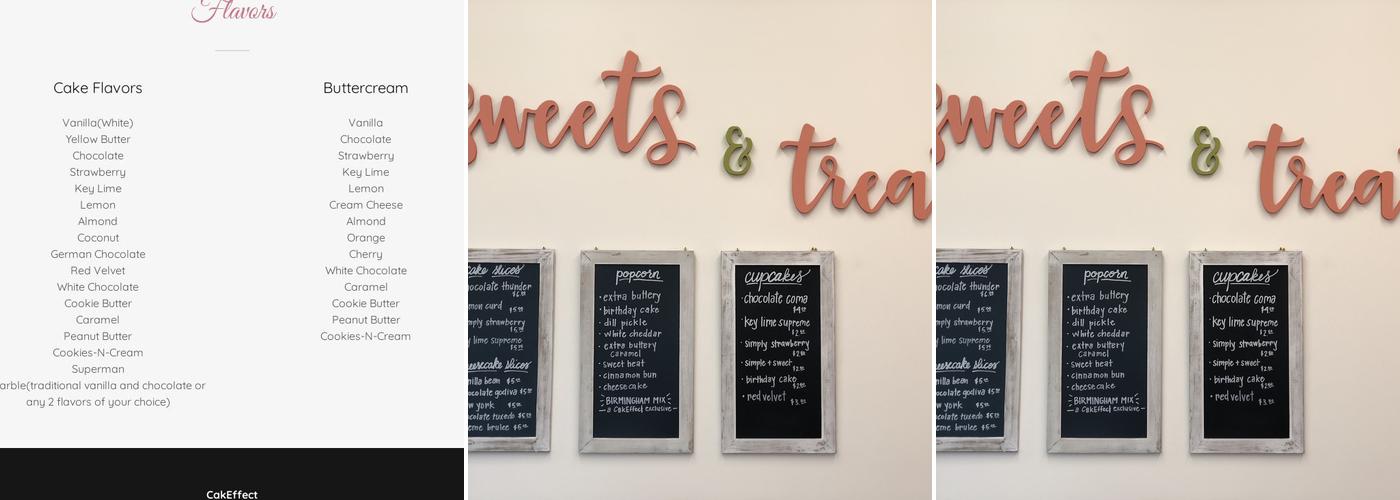 Flavors
Cake Flavors
Vanilla(White)
Yellow Butter
Chocolate
Strawberry
Key Lime
Lemon
Almond
Coconut
German Chocolate
Red Velvet
White Chocolate
Cookie Butter
Caramel
Peanut Butter
Cookies-N-Cream
Superman
arble(traditional vanilla and chocolate or
any 2 flavors of your choice)
Buttercream
Vanilla
Chocolate
Strawberry
Key Lime
Lemon
Cream Cheese
Almond
Orange
Cherry
White Chocolate
Caramel
Cookie Butter
Peanut Butter
Cookies-N-Cream
CakEffect
sweets & trea
cake slices
hocolate thunder
mon curd
mply strawberry
y lime supreme
eesecake slices
nilla bean $5
ocolate godiva $5
w york $5
ocolate tuxedo $5
eme brulee $5
popcorn
• extra buttery
• birthday cake
• dill pickle
• white cheddar
• extra buttery
caramel
• sweet heat
• cinnamon bun
• cheesecake
BIRMINGHAM MIX
- a CakEffect exclusive -
cupcakes
• chocolate coma
• key lime supreme
• simply strawberry
• simple + sweet
• birthday cake
• red velvet
sweets & trea
cake slices
ocolate thunder
mon curd
mply strawberry
y lime supreme
eesecake slices
nilla bean $5
ocolate godiva $5
w york $5
ocolate tuxedo $5
eme brulee $5
popcorn
• extra buttery
• birthday cake
• dill pickle
• white cheddar
• extra buttery
caramel
• sweet heat
• cinnamon bun
• cheesecake
BIRMINGHAM MIX
- a CakEffect exclusive -
cupcakes
• chocolate coma
• key lime supreme
• simply strawberry
• simple + sweet
• birthday cake
• red velvet